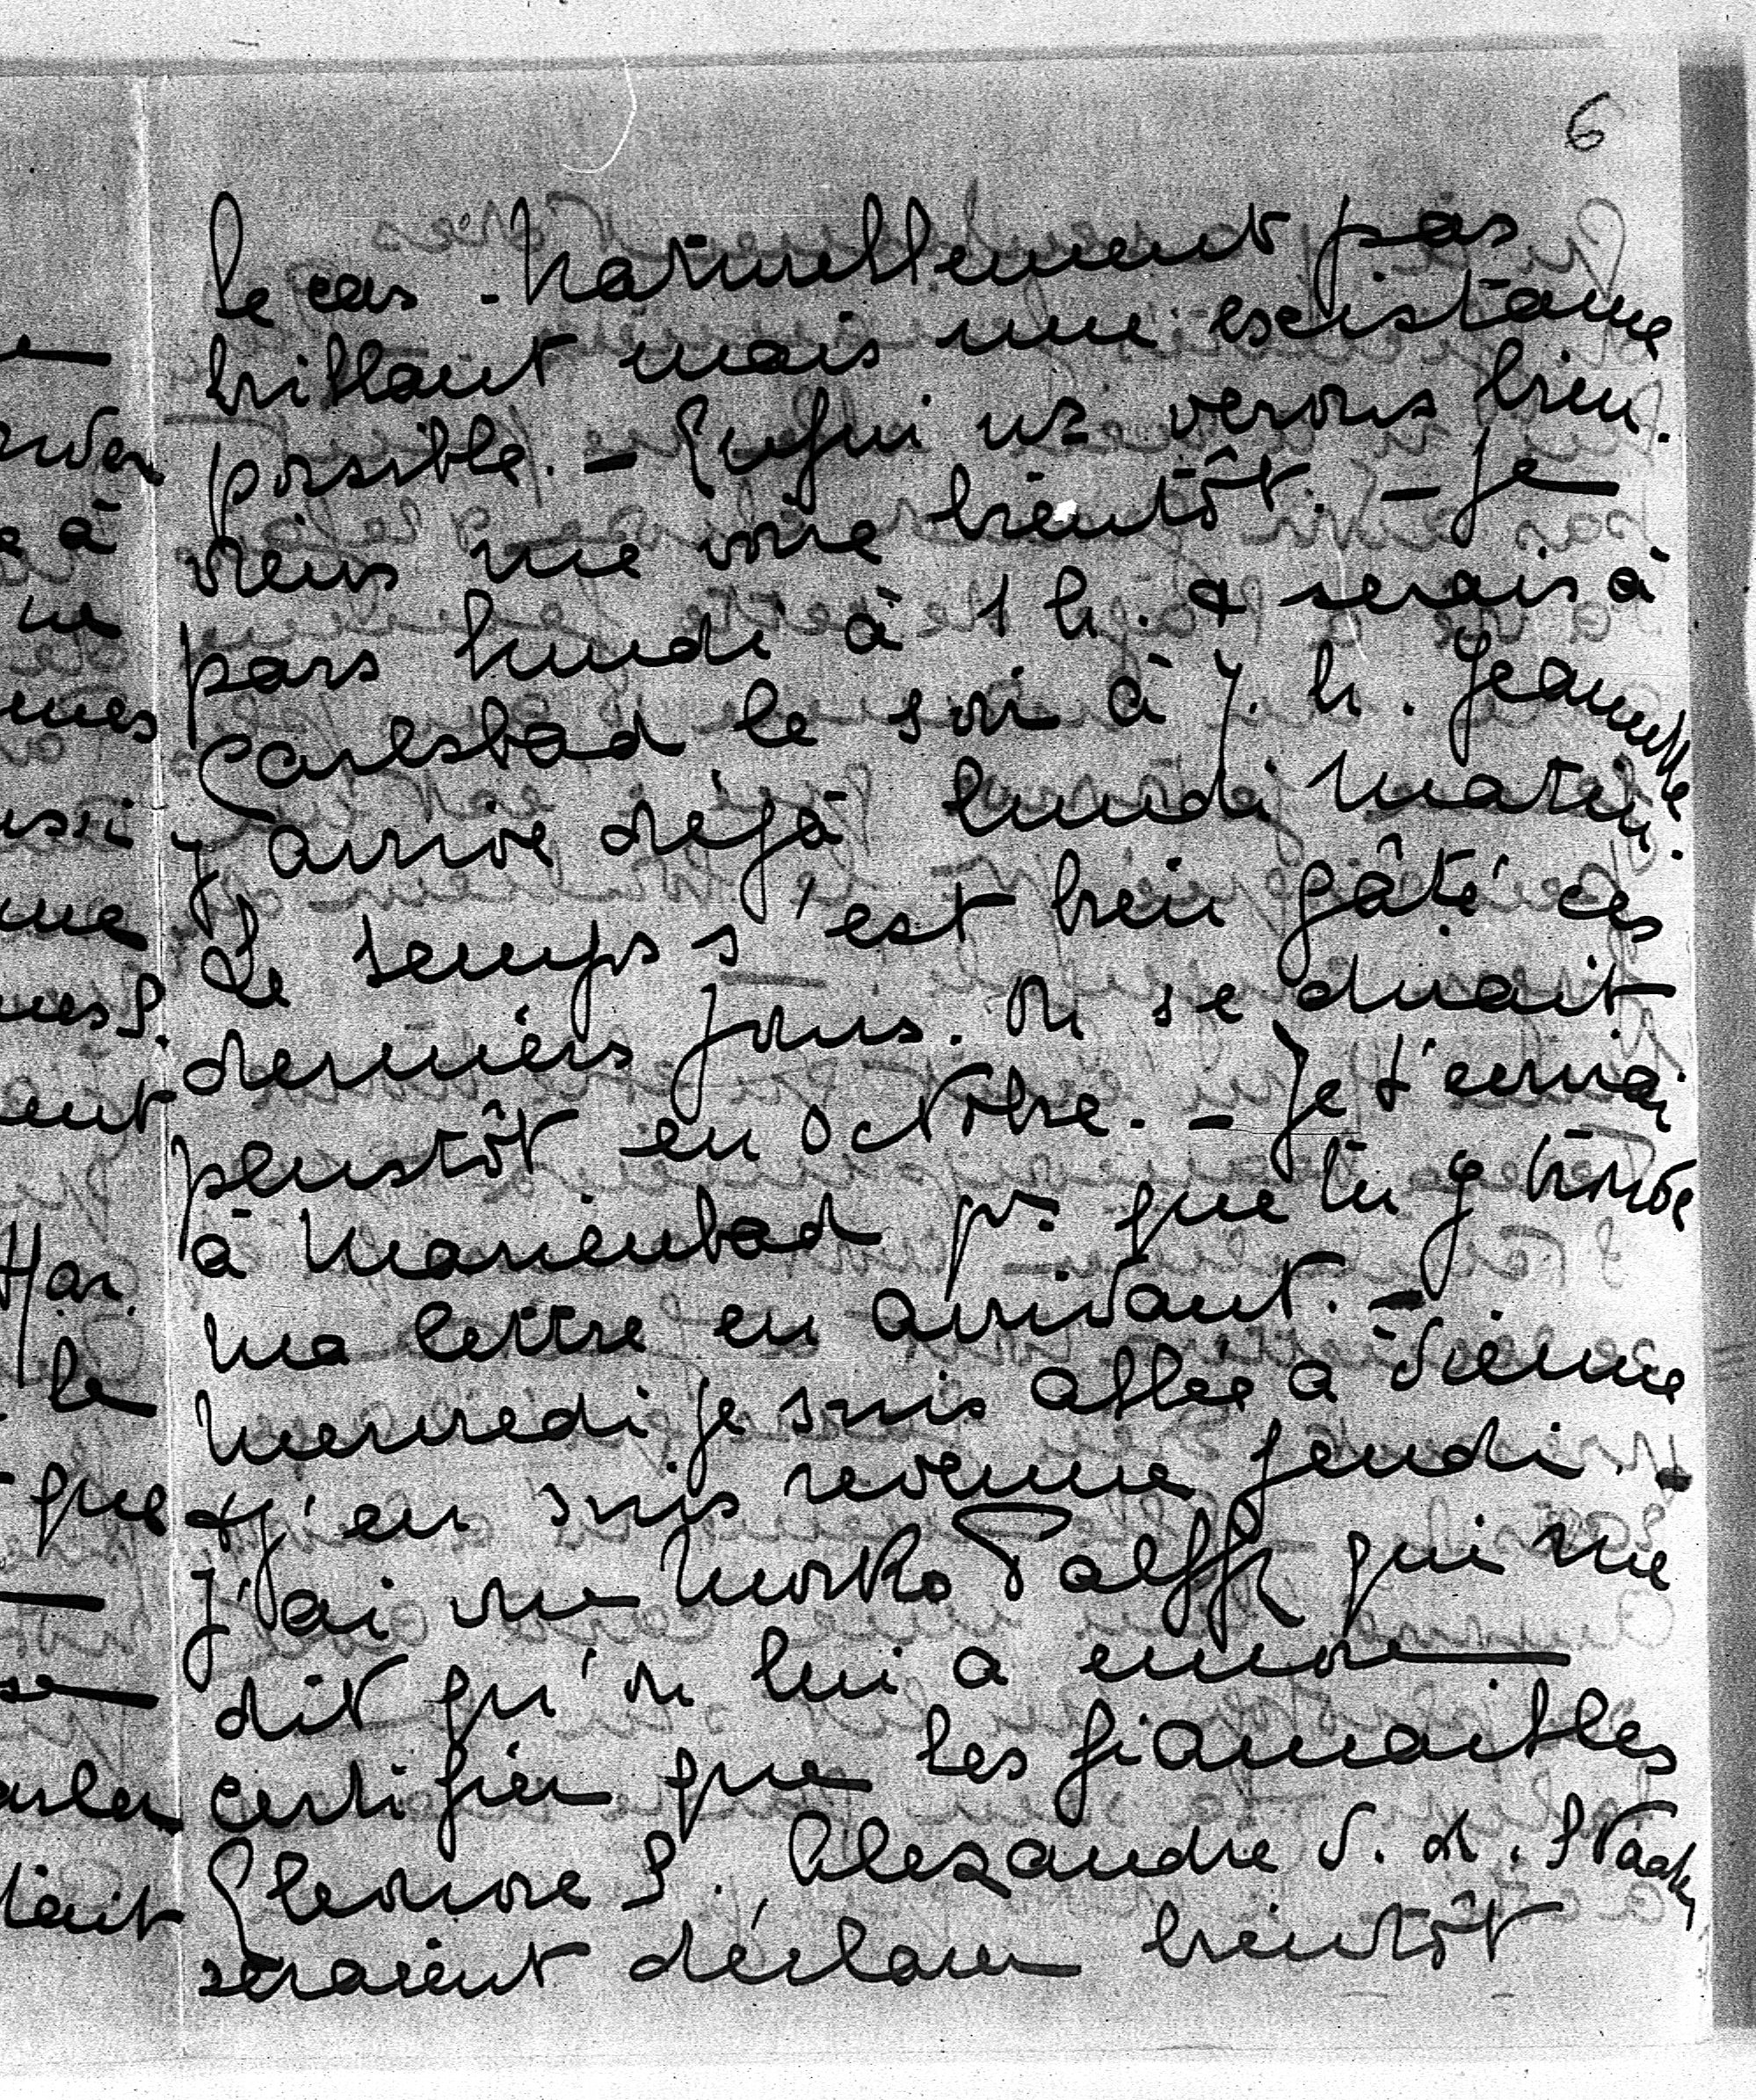 6
le cas. Naturellement pas
brillant mais une existance
possible. - Enfin ns verons bien.
viens me voire bientôt. - Je
pars lundi à 1 h. & serais à
Carlsbad le soir à 7. h. Jeannette
y arrive déjà lundi matin.
Le temps s'est bien gâté ces
derniers jours. On se dirait
plustôt en Octobre. - Je t'ecrirai
à Marienbad pr. que tu y trouve
ma lettre en arrivant. -
Mercredi je suis allée à Vienne
& j'en suis revenue Jeudi. -
J'ai vue Morko Palffy qui me
dit qu'on lui a encore
certifier que les fiançailles
Eleonore S. Alexandre V. d.
seraient déclarer bientôt